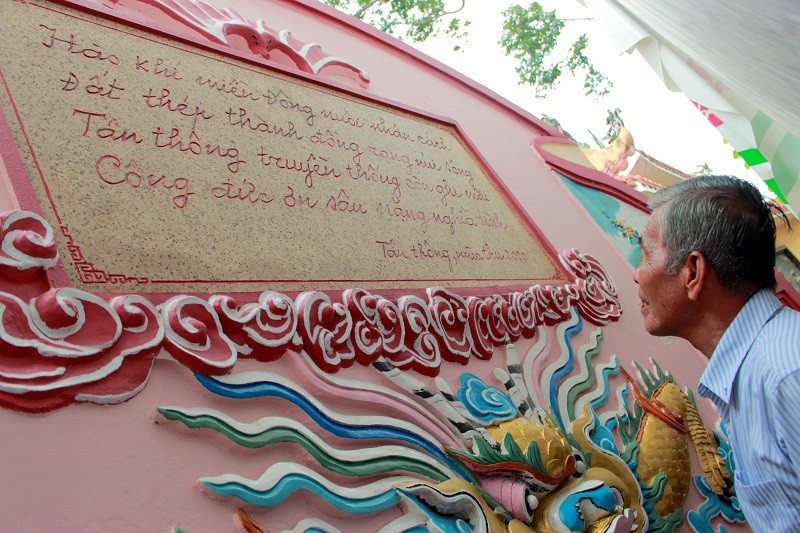 Hào khí miền Đông nước nhân cách
Đất thép thành đồng rạng núi sông
Tân thông truyền thống cần ghi nhớ
Công đức ơn sâu nặng nghĩa tình
Tân thông, mùa thu